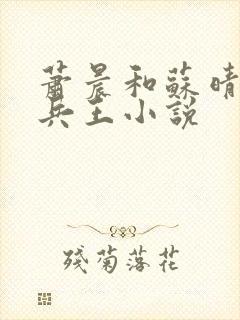 蕭晨和蘇晴
兵王小說
殘菊落花